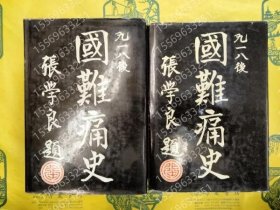 九一八後
國難痛史
張学良題
九一八後
國難痛史
張学良題